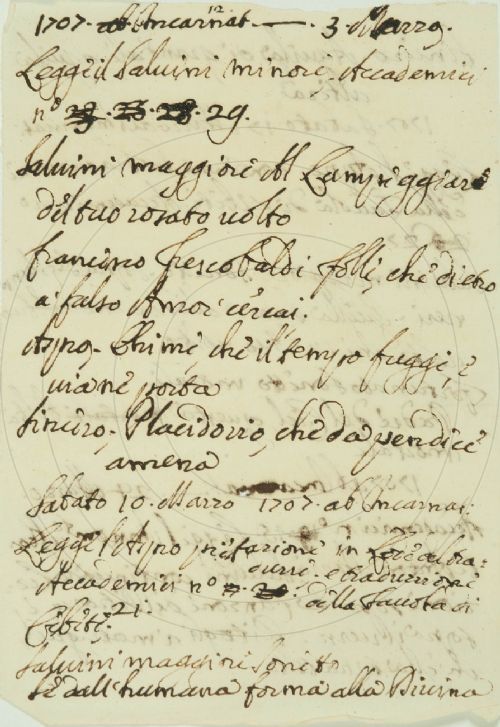 1707. ab Incarnat. — 3. Marzo.
Legge il Salvini minore. Accademici
n.º 29.
Salvini maggiore Al Lampeggiar
del tuo rosato uolto
francesco frescobaldi folli, che dietro
a falso Amor cercai.
Aspro. Ohime, che il tempo fugge, e
uia ne porta
Sincero. Placidorio, che da pendice
amena
Sabato 10. Marzo 1707. ab Incarnat:
Legge l'Aspro in
Accademici n.º e traduzzione
della Tauola di
Cebete. 21.
Salvini maggiore Sonetto
Se dall'humana forma alla Diuina